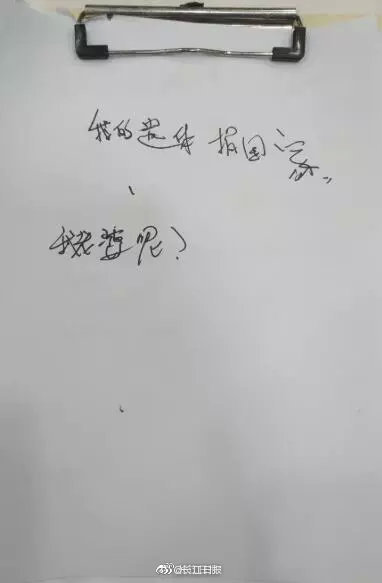 我的遗体捐国家
我老婆呢？
@长江日报